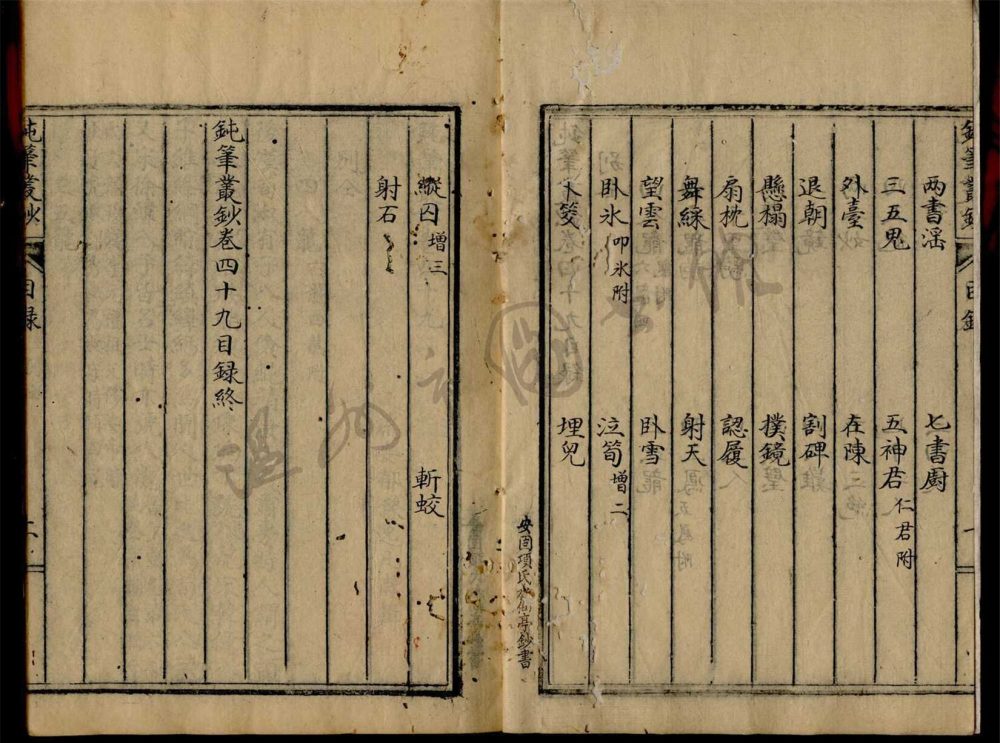 鈍筆叢鈔 目録 一
两書淫 七書廚
三五鬼 五神君 仁君附
外臺 在陳
退朝 割碑
懸榻 撲鏡
扇枕 認履
舞綵 射天
望雲 卧雪
卧氷 叩氷附 泣筍 增二
埋兒
安固項氏水仙亭鈔書
縱囚 增三 斬蛟
射石
鈍筆叢鈔卷四十九目録終
鈍筆叢鈔 目録 二